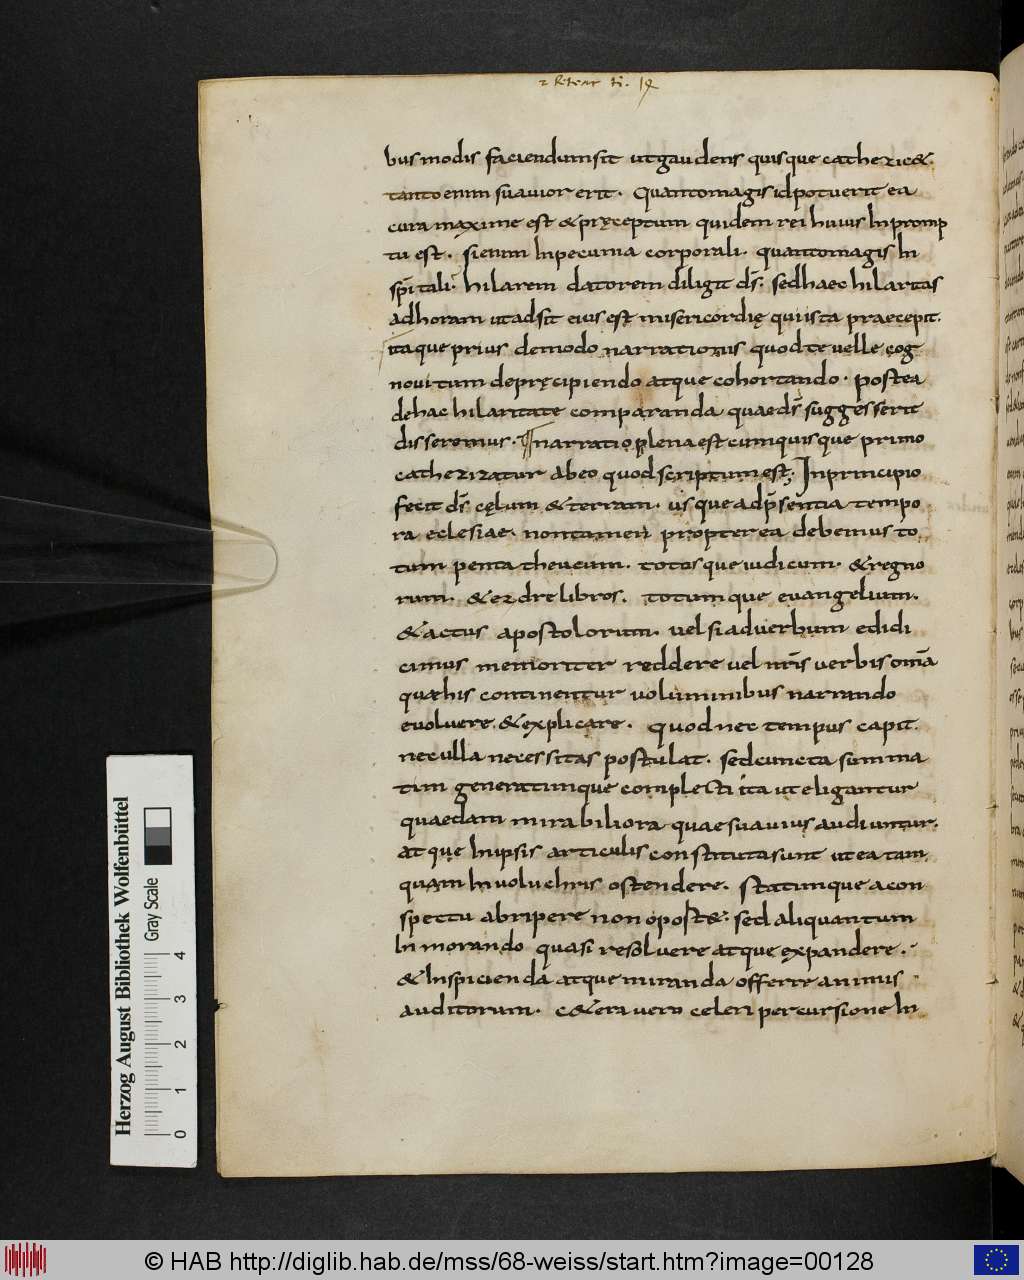 bus modis faciendum sit ut gaudens quisque catherize&.
tanto enim suavior erit. Quanto magis id potuerit ea
cura maxime est & pręceptum quidem rei huius In promp
tu est. si enim In pecunia corporali. quanto magis In
sp̄itali. hilarem datorem diligit d̄s. sed haec hilaritas
ad horam ut adsit eius est misericordię qui ista praecepit.
itaque prius de modo narrationis quod te velle cog
novi tum de pręcipiendo atque cohortando. postea
de hac hilaritate comparanda quae d̄s suggesserit
disseremus. narratio plena est cum quisque primo
catherizatur ab eo quod scriptum est; In principio
fecit d̄s cęlum & terram. usque ad p̄sentia tempo
ra eclesiae. non tamen propterea debemus to
tum pentatheucum. totosque iudicum. & regno
rum. & ezdre libros. totumque evangelium.
& actus apostolorum. vel si ad verbum edidi
cimus memoriter reddere vel nr̄is verbis om̄a
quae his continentur voluminibus narrando
evolvere. & explicare. Quod nec tempus capit.
nec ulla necessitas postulat. sed cuncta summa
tim generatimque complecti ita ut eligantur
quaedam mirabiliora quae suavius audiuntur.
atque In ipsis articulis constituta sunt ut ea tam
quam In voluchris ostendere. statimque a con
spectu abripere non oport&. sed aliquantum
In morando quasi resolvere atque expandere.
& Inspicienda atque miranda offerre animis
auditorum. c&era vero celeri percursione In
Herzog August Bibliothek Wolfenbüttel
Gray Scale
0 1 2 3 4
© HAB http://diglib.hab.de/mss/68-weiss/start.htm?image=00128